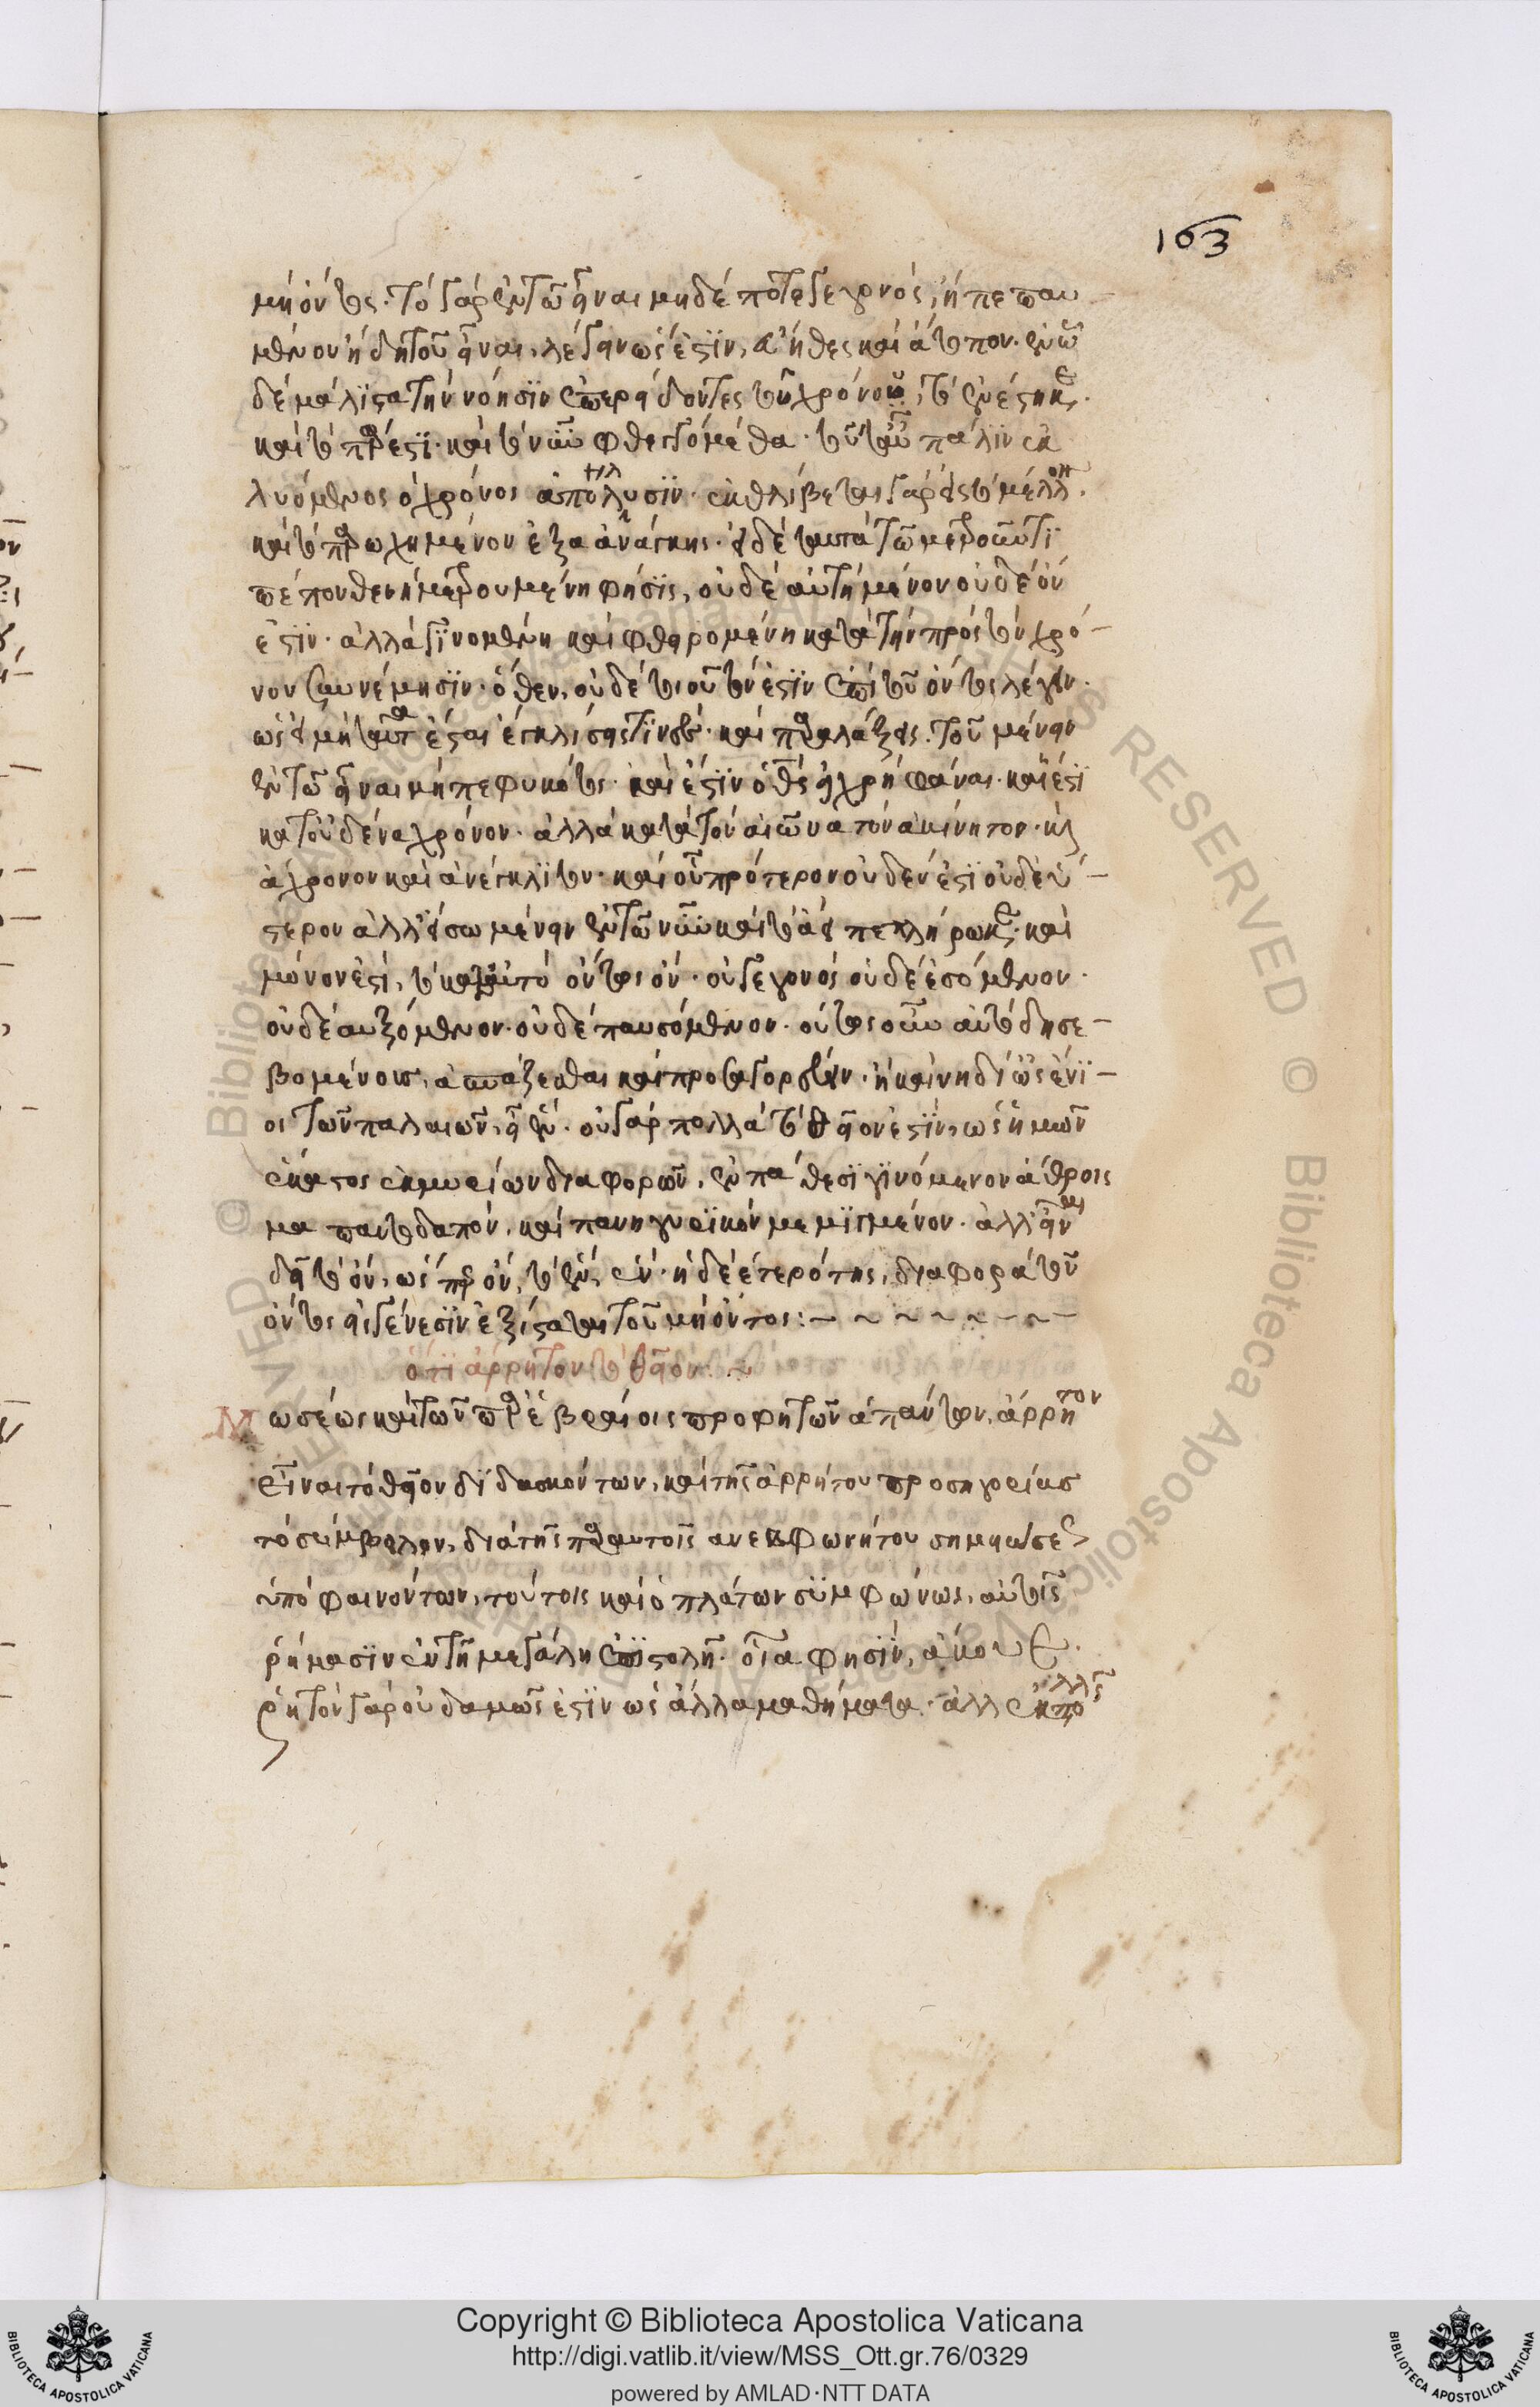 163
μὴ ὄντος. τὸ γὰρ ἐν τῶ εἶναι μηδέποτε γεγονός, ἢ πεπαυ
μένον ἤδη τοῦ εἶναι, λέγειν ὡς ἐστὶν, εὔηθες καὶ ἄτοπον. ἐν ὧ
δὲ μάλιστα τὴν νόησιν ἐπερείδοντες τοῦ χρόνου, τὸ ἐνέστηκε.
καὶ τὸ πάρεστι. καὶ τὸ νῦν φθεγγόμεθα. τοῦτ' αὖ πάλιν ἐκ
λυόμενος ὁ χρόνος ἀπόλλυσιν. ἐκθλίβεται γὰρ εἰς τὸ μέλλον.
καὶ τὸ παρωχημένον ἐξ ἀνάγκης. εἰ δὲ ταυτὰ τῶ μετροῦντι
πέπονθεν ἡ μετρουμένη φύσις, οὐδὲ αὐτὴ μένον οὐδὲ ὄν
ἐστιν. ἀλλὰ γινομένη καὶ φθειρομένη κατὰ τὴν πρὸς τὸν χρό
νον συννέμησιν. ὅθεν, οὐδὲ τοιοῦτόν ἐστιν ἐπὶ τοῦ ὄντος λέγειν.
ὡς εἰ μὴ ταῦτα ἔσται ἐγκλίσεις τινὲς. καὶ παραλάξεις. τοῦ μένειν
ἐν τῶ εἶναι μὴ πεφυκότος. καὶ ἔστιν ὁ θεὸς εἰ χρὴ φάναι. καὶ ἔστι
κατ' οὐδένα χρόνον. ἀλλὰ κατὰ τὸν αἰῶνα τὸν ἀκίνητον. καὶ
ἄχρονον καὶ ἀνέγκλιτον. καὶ οὗ πρότερον οὐδέν ἐστι οὐδὲ ὕ
στερον ἀλλ' εἷς ὢν ἐν τῶ νῦν καὶ τὸ ἀεὶ πεπλήρωκε. καὶ
μόνον ἐστὶ, τὸ κατ' αὐτὸ ὄντως ὄν. οὐ γεγονὸς οὐδὲ ἐσόμενον.
οὐδὲ αὐξόμενον. οὐδὲ παυσόμενον. οὕτως οὖν αὐτὸ δὴ σε
βομένους, ἀσπάζεσθαι καὶ προσαγορεύειν. ἢ καὶ νὴ δί' ὡς ἔνι
οι τῶν παλαιῶν, εἶ ἕν. οὐ γὰρ πολλὰ τὸ θεῖον ἐστὶν, ὡς ἡμῶν
ἕκαστος ἐκ μυρίων διαφορῶν, ἐν πάθεσι γινόμενον ἄθροισ
μα παντοδαπὸν, καὶ πανηγυρικὸν μεμιγμένον. ἀλλ' εἶναι
δεῖ τὸ ὄν, ὥσπερ ὄν, τὸ ἕν. ἡ δὲ ἑτερότης, διαφορᾶ τοῦ
ὄντος εἰς γένεσιν ἐξίσταται τοῦ μὴ ὄντος:
ὅτι ἄρρητον τὸ θεῖον
Μωσέως καὶ τῶν παρ' ἑβραίοις προφητῶν ἁπάντων, ἄρρητον
εἶναι τὸ θεῖον διδασκόντων, καὶ τῆς ἀρρήτου προσηγορίας
τὸ σύμβολον, διὰ τῆς παρ' αὐτοῖς ἀνεκφωνήτου σημειώσε
ὑποφαινόντων, τούτοις καὶ ὁ πλάτων συμφώνως, αὐτοῖς
ῥήμασιν ἐν τῆ μεγάλη ἐπιστολῆ. οἷα φησὶν, ἄκουε.
ῥητὸν γὰρ οὐδαμῶς ἐστὶν ὡς ἄλλα μαθήματα. ἀλλ' ἐκ πολλῆς
Copyright © Biblioteca Apostolica Vaticana
http://digi.vatlib.it/view/MSS_Ott.gr.76/0329
powered by AMLAD·NTT DATA